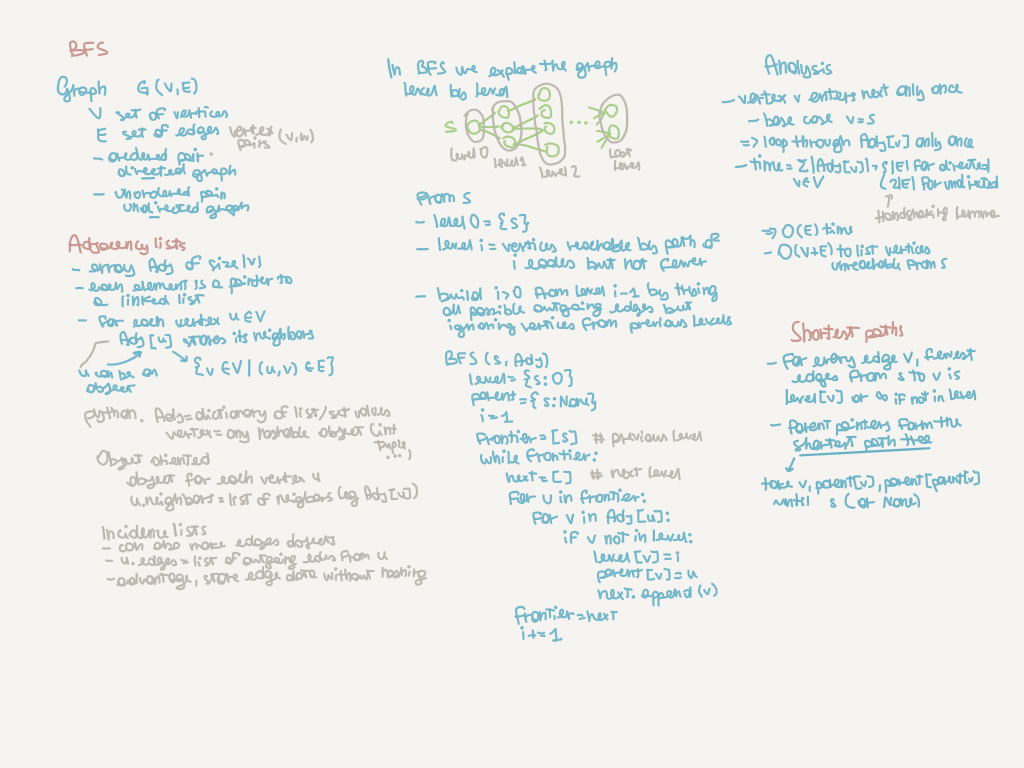 BFS
Graph G (V,E)
V set of vertices
E set of edges vertex pairs (v,w)
- ordered pair
directed graph
- unordered pair
undirected graph
Adjacency lists
- array Adj of size |V|
- each element is a pointer to
a linked list
- For each vertex u ∈ V
Adj [u] stores its neighbors
{v ∈ V | (u,v) ∈ E}
u can be an
object
python. Adj = dictionary of list/set values
vertex = any hashable object (int
tuple
...)
Object oriented
object for each vertex u
u.neighbors = list of neigbors (eg Adj[u])
Incidence lists
- can also make edges objects
- u.edges = list of outgoing edes from u
- advantage, store edge data without hashing
In BFS we explore the graph
level by level
s
Level 0
Level 1
Level 2
...
Last
Level
From s
- level 0 = {s}
- level i = vertices reachable by path of
i edges but not fewer
- build i>0 from level i-1 by trying
all possible outgoing edges but
ignoring vertices from previous levels
BFS (s, Adj)
level = {s:0}
parent = {s:None}
i = 1
Frontier = [s] # previous level
while frontier:
next = [] # next level
For u in frontier:
For v in Adj[u]:
if v not in level:
level[v] = i
parent[v] = u
next.append(v)
frontier = next
i += 1
Analysis
- vertex v enters next only once
- base case v = s
=> loop through Adj[v] only once
- time = Σ |Adj[v]| = { |E| for directed
v∈V 2|E| for undirected
Handshaking Lemma
=> O(E) time
- O(V+E) to list vertices
unreachable from s
Shortest paths
- For every edge v, fewest
edges from s to v is
level[v] or ∞ if not in level
- Parent pointers form the
shortest path tree
take v, parent[v], parent[parent[v]
until s (or None)